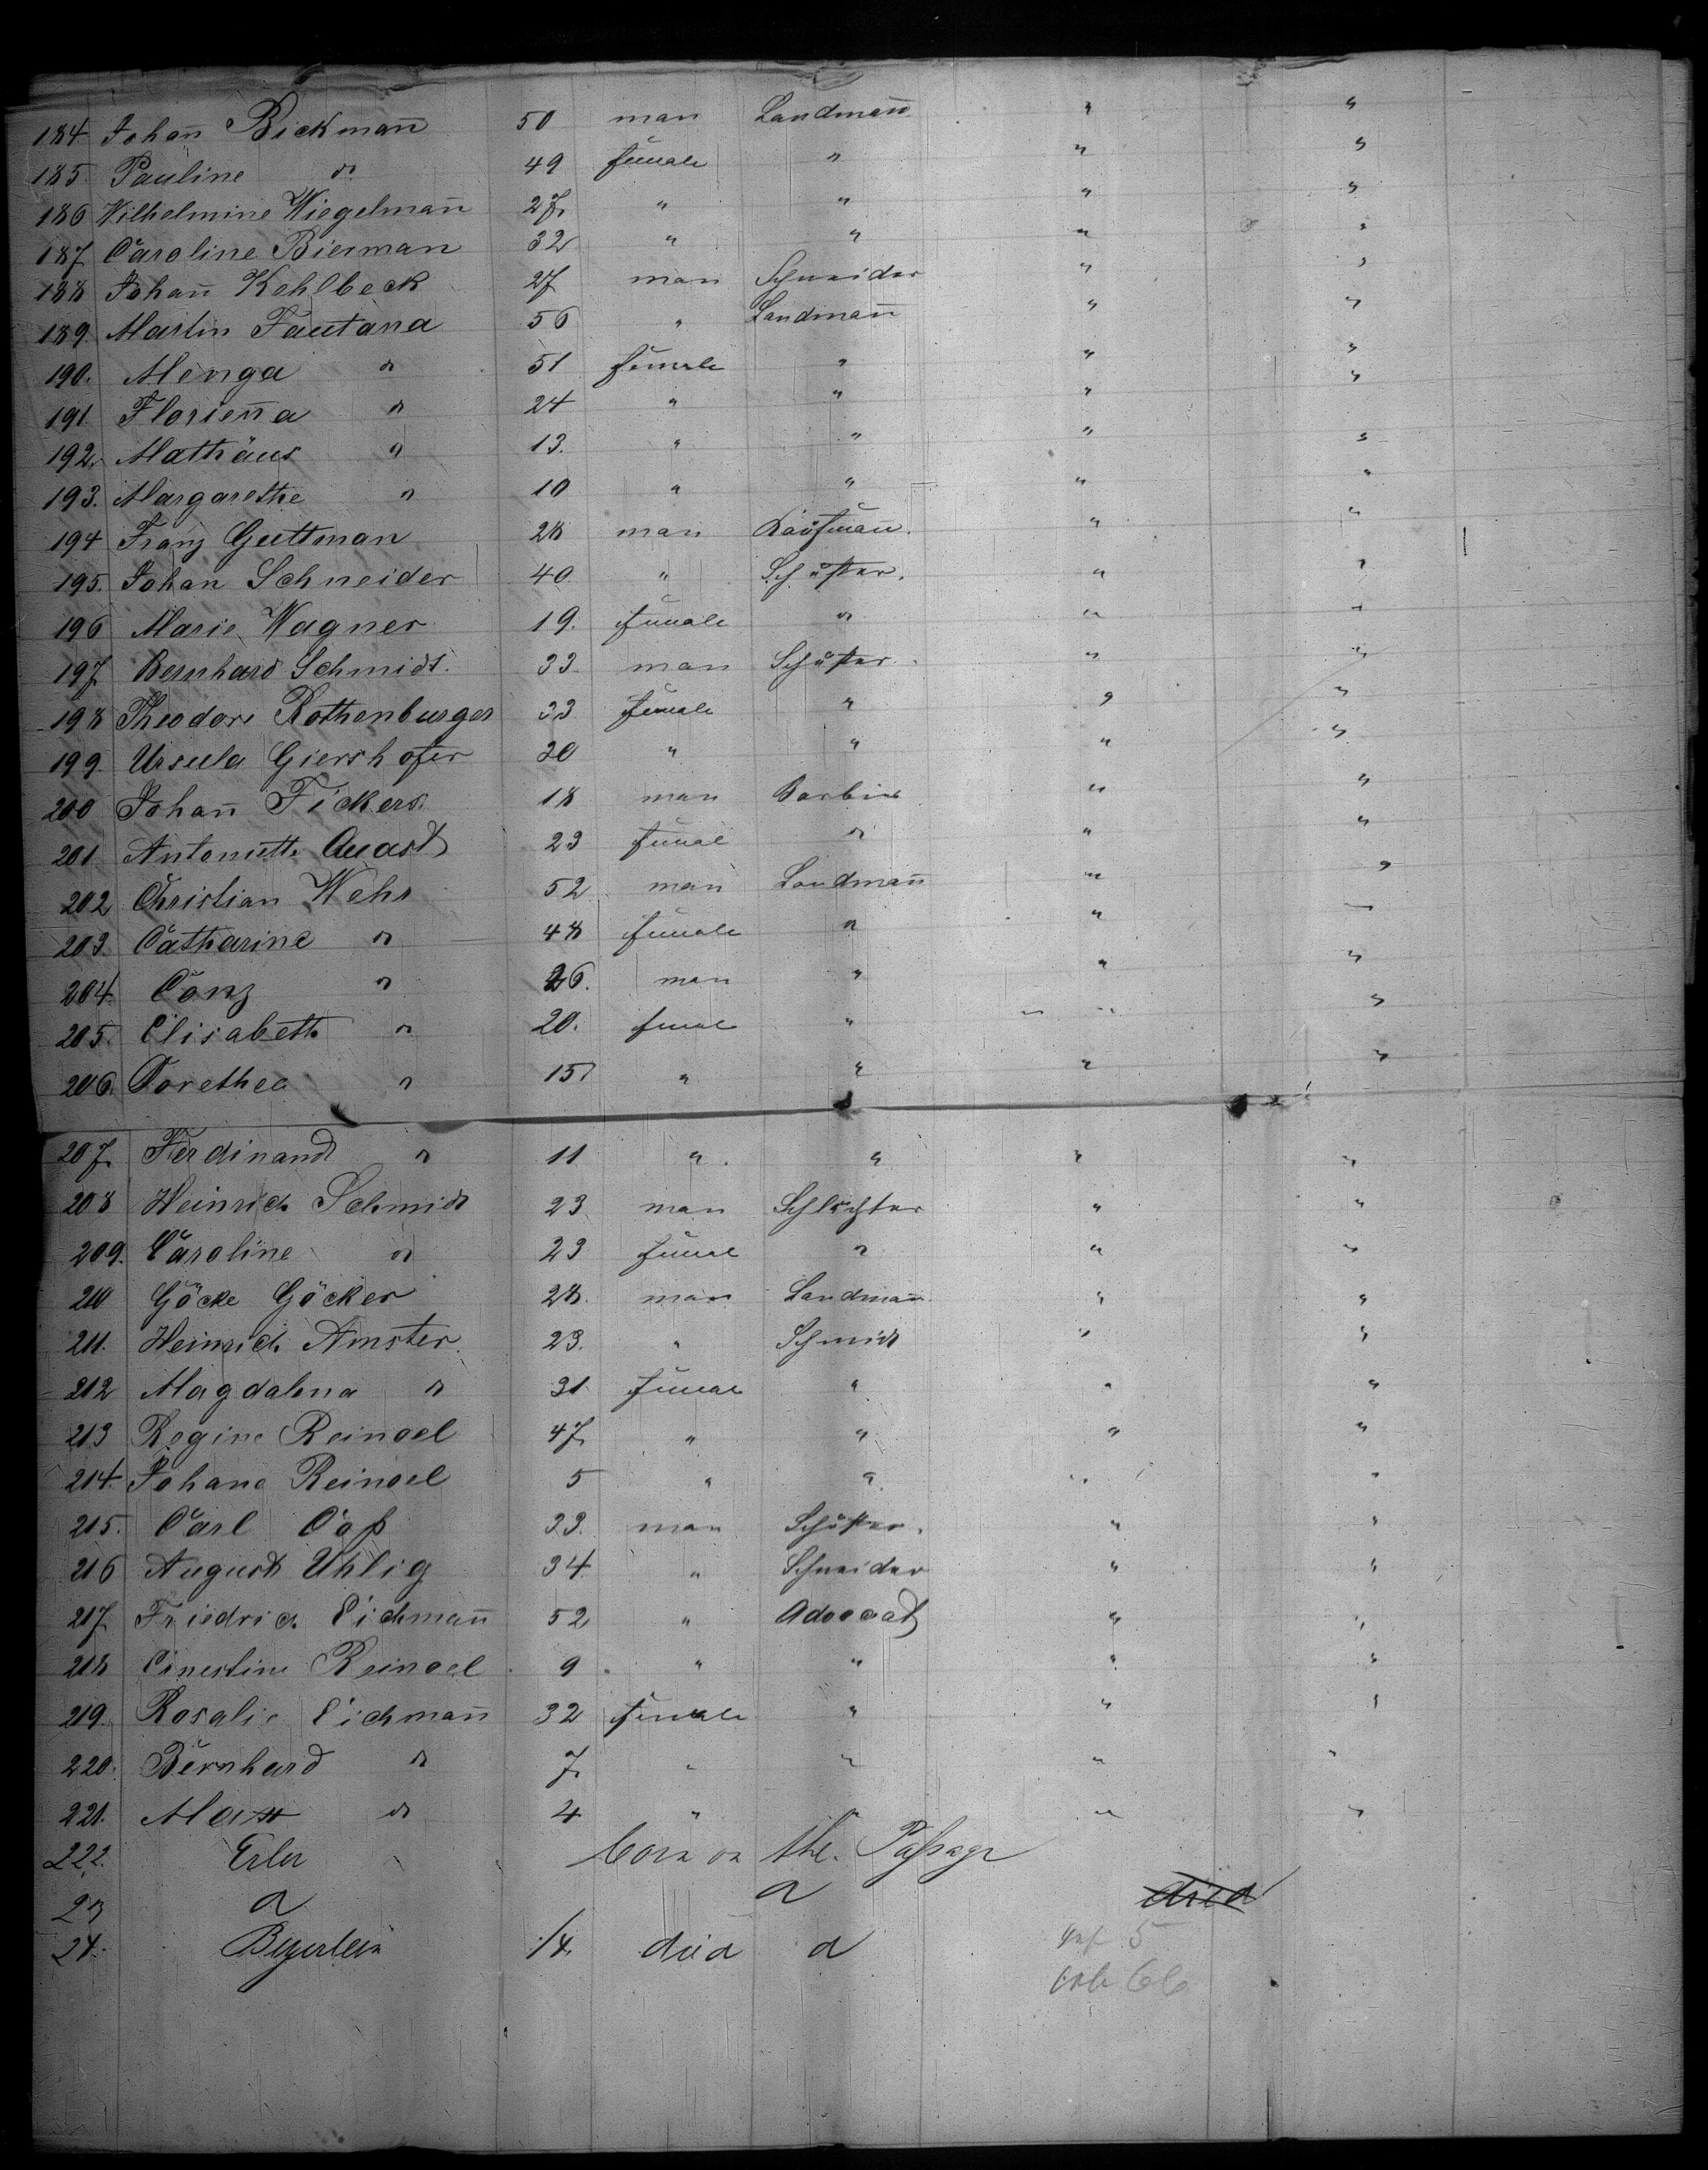 184. Johan̅ Bickman̅ 50 man Landman̅ " "
185. Pauline do 49 female " " "
186 Wilhelmine Wiegelman̅ 27 " " " "
187 Caroline Bierman 32 " " " "
188 Johan̅ Kehlbeck 27 man Schneider " "
189. Martin Fautana 56 " Landman̅ " "
190. Menga do 51 female " " "
191. Florien̅a do 24 " " " "
192. Mathäus do 13. " " " "
193. Margarethe do 10 " " " "
194 Franz Guttman 28 man Kaufman̅. " "
195. Johan Schneider 40 " Schuster. " "
196 Marie Wagner 19. female do " "
197 Bernhard Schmidt. 33 man Schuster. " "
198 Theodore Rothenburger 33 female " " "
199. Ursula Giershofer 30 " " " "
200 Johan̅ Fickers 18 man Barbier " "
201 Antoniette Quast 23 female do " "
202 Christian Wehr 52 man Landman̅ " "
203. Catharine do 48 female do " "
204. Conz do 26. man " " "
205. Elisabeth do 20. female " " "
206. Dorethea do 15 " " " "
207. Ferdinand do 11 " " " "
208 Heinrich Schmidt 23 man Schlächter " "
209. Caroline do 23 female do " "
210 Göcke Göcker 28. man Landman̅ " "
211. Heinrich Amster. 23. " Schmidt " "
212 Magdalena do 31 female " " "
213 Regine Reinoel 47 " " " "
214. Johane Reinoel 5 " " " "
215. Carl 33. man Schuster. " "
216 August Uhlig 34 " Schneider " "
217 Friedrich Eichman̅ 52 " Advocat " "
218 Reinoel 9 " " " "
219. Rosalie Eichman̅ 32 female " " "
220. Bernhard do 7 " " " "
221. Max do 4 " " " "
222. Erler born on the Paſsage
23 do do died
24. died do
5
66